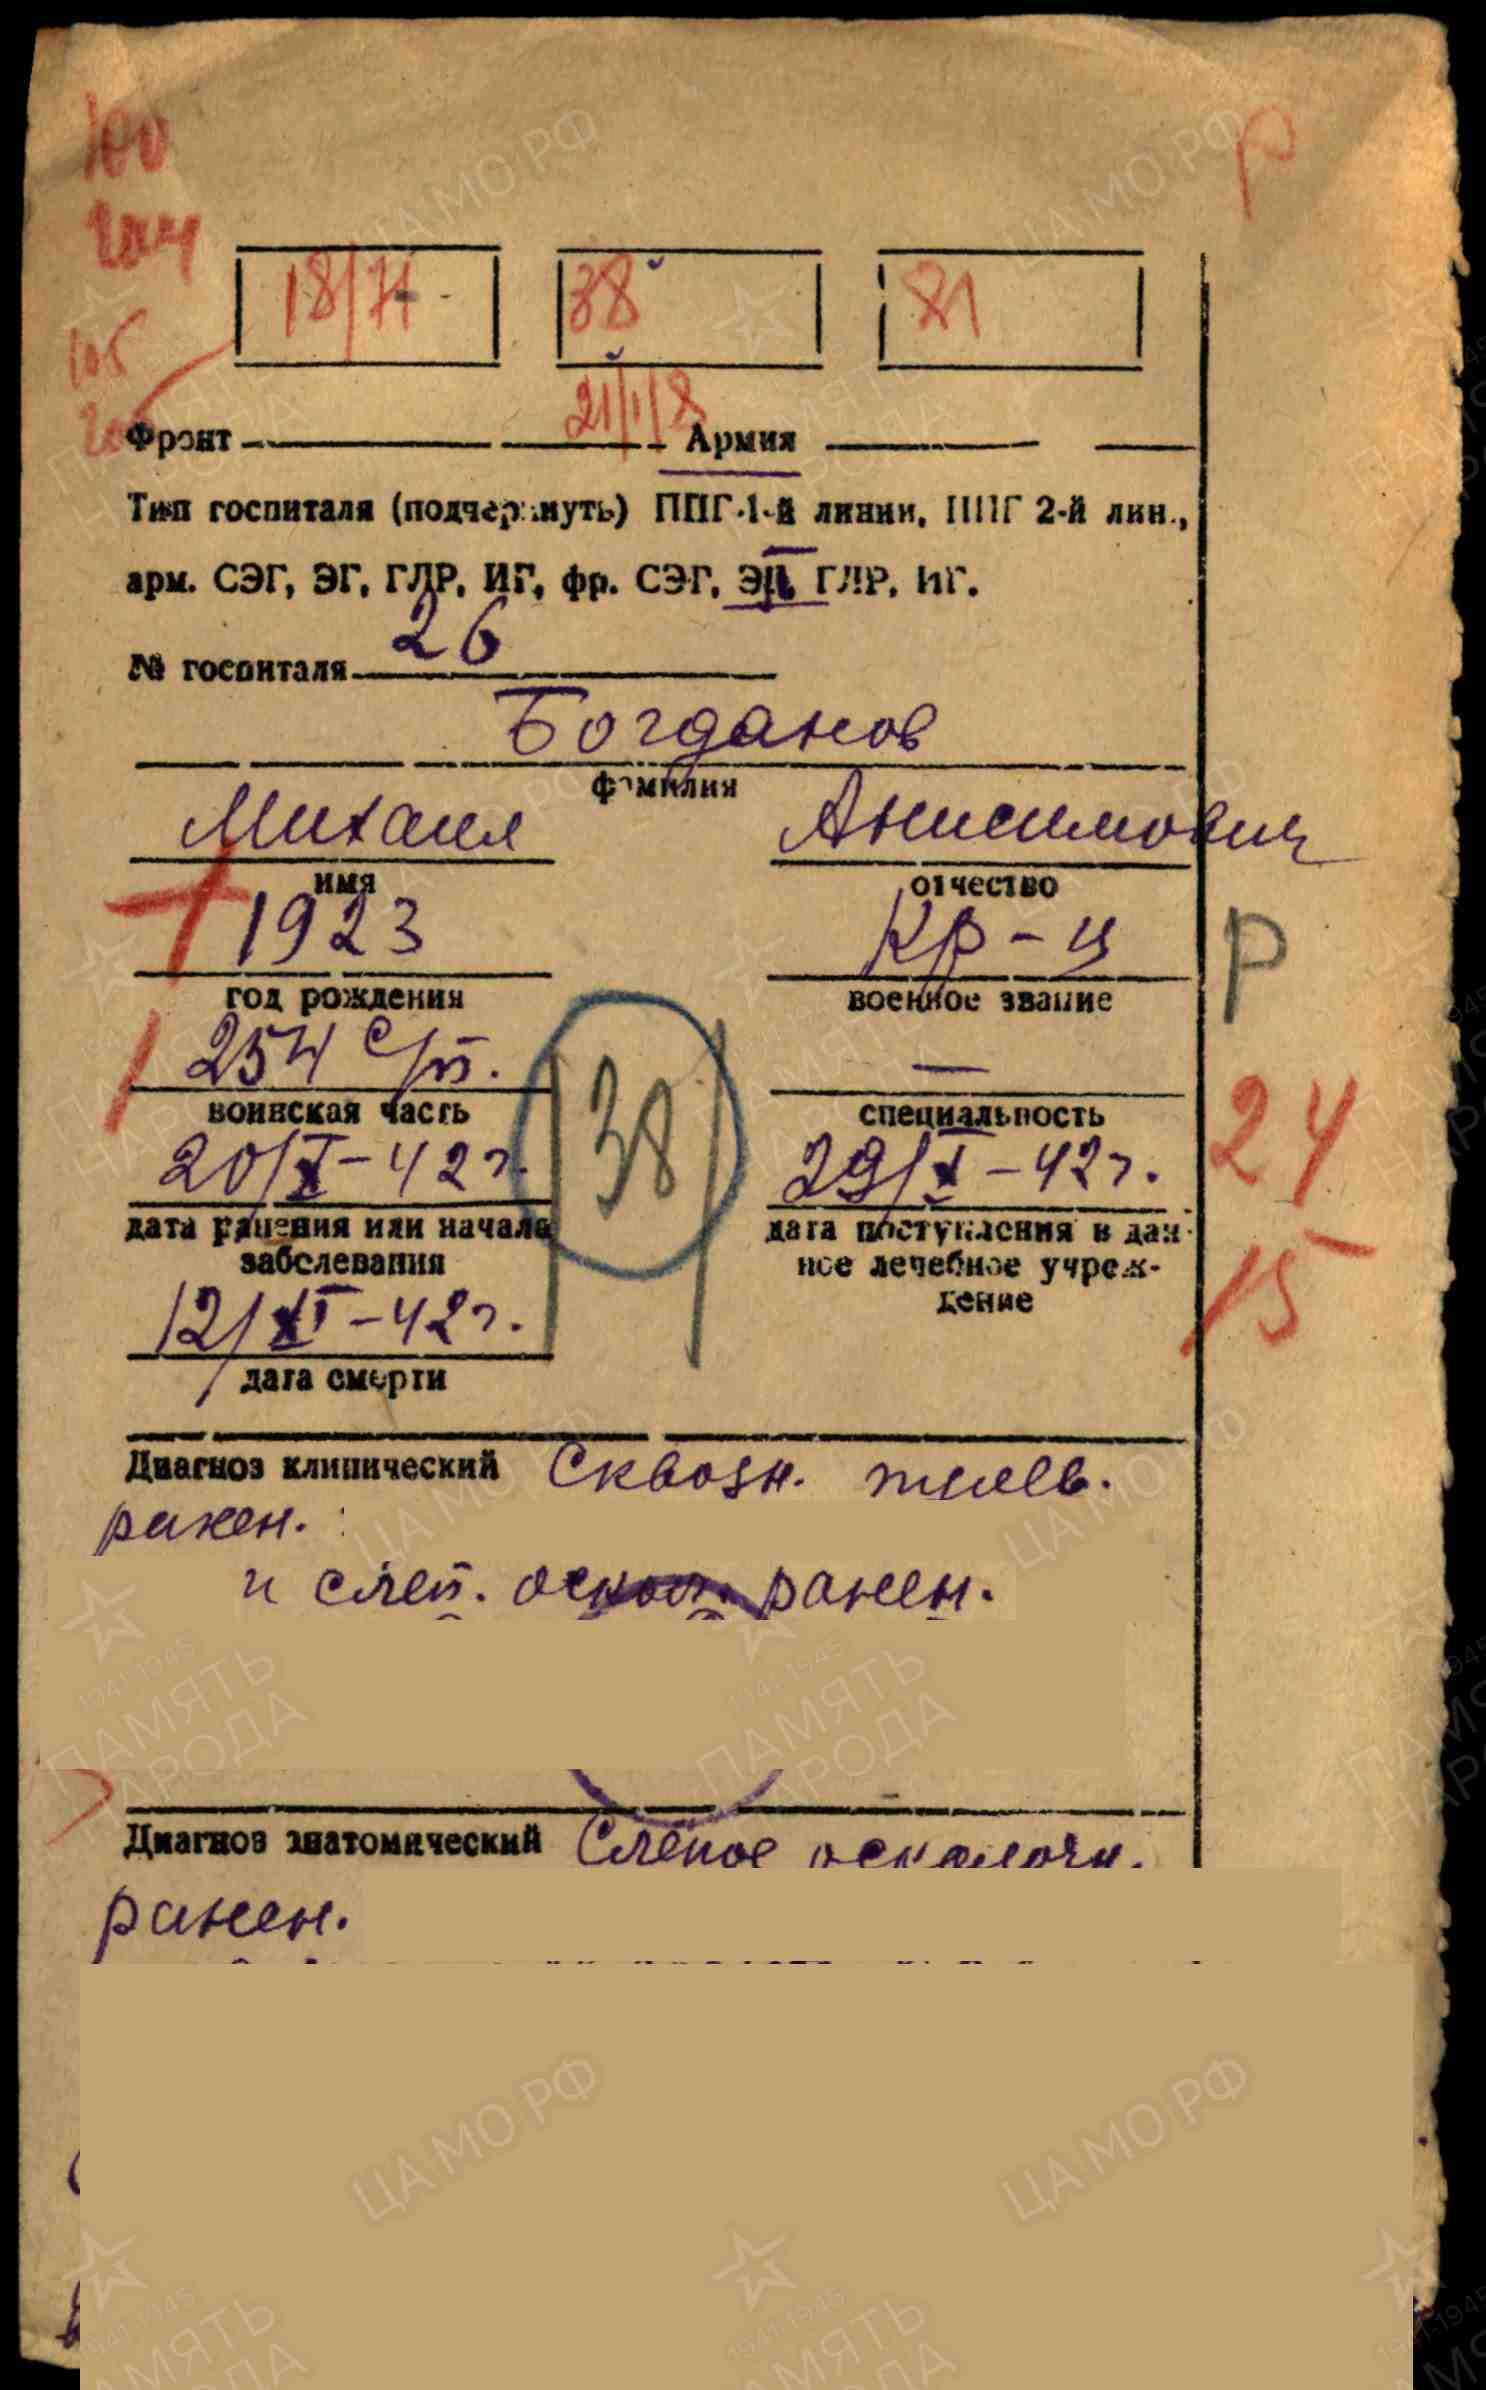 100
Р
18/71
38
81
105
21/1/8
Фронт Армия
Тип госпиталя (подчеркнуть) ППГ 1-й линии, ППГ 2-й лин.,
арм. СЭГ, ЭГ, ГЛР, ИГ, фр. СЭГ, ЭГ, ГЛР, ИГ.
26
№ госпиталя
Богданов
фамилия
Михаил Анисимович
имя отчество
1923 Кр-ц
год рождения военное звание
Р
254 с/п. —
воинская часть специальность
38
24
20/X-42г. 29/X-42г.
дата ранения или начала дата поступления в дан-
заболевания ное лечебное учреж-
дение
15
12/XI-42г.
дата смерти
Диагноз клинический Сквозн. пулев.
ранен.
и слеп. оскол. ранен.
Диагноз анатомический Слепое осколочн.
ранен.
ЦАМО РФ
1941-1945
ПАМЯТЬ
НАРОДА